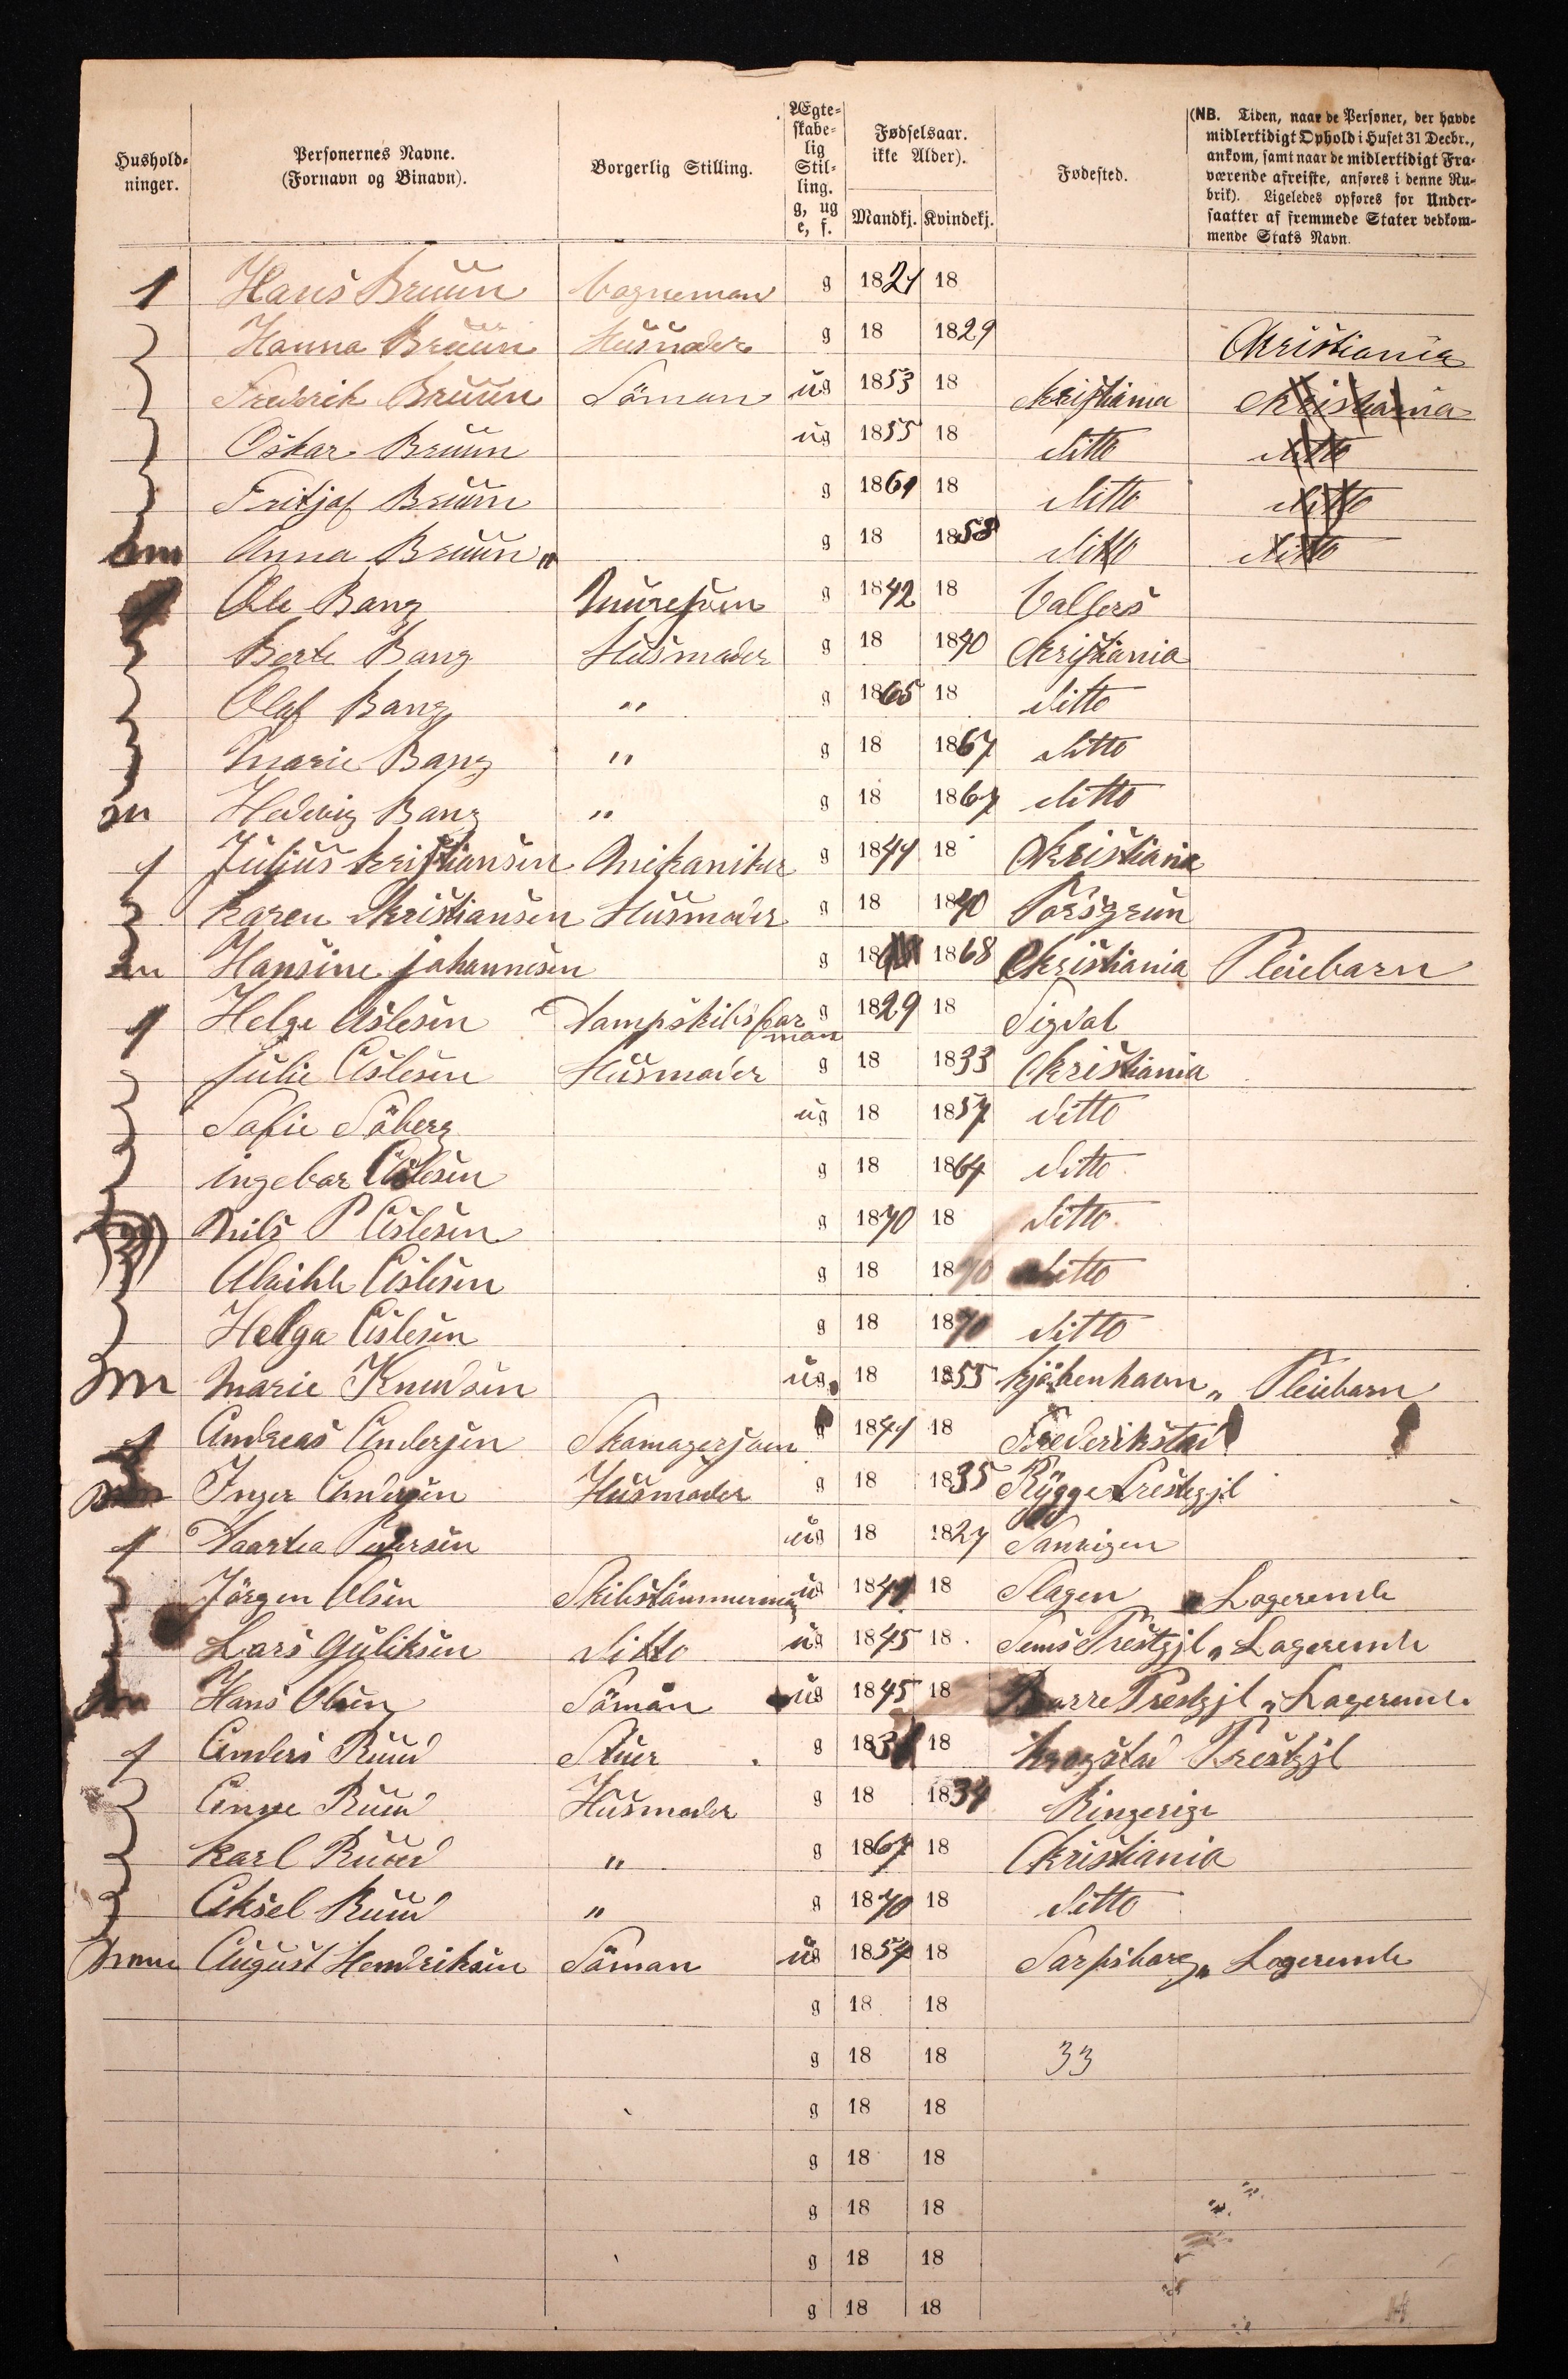 Hushold-
ninger.
Personernes Navne.
(Fornavn og Binavn).
Borgerlig Stilling.
Ægte-
skabe-
lig
Stil-
ling.
g, ug
e, f.
Fødselsaar.
ikke Alder).
Mandkj. Kvindekj.
Fødested.
(NB. Tiden, naar de Personer, der havde
midlertidigt Ophold i Huset 31 Decbr.,
ankom, samt naar de midlertidigt Fra-
værende afreiste, anføres i denne Ru-
brik). Ligeledes opføres for Under-
saatter af fremmede Stater vedkom-
mende Stats Navn.
1 Hans Bruun Vogneman g 1821 18
Hanna Bruun Husmoder g 18 1829 Christiania
Fredrik Bruun Söman ug 1853 18 Christiania Christiania
Oskar Bruun ug 1855 18 ditto ditto
Fritjof Bruun g 1861 18 ditto ditto
Anna Bruun " g 18 1858 ditto ditto
Ole Bang Muuresven g 1842 18 Valders
Berte Bang Husmoder g 18 1840 Christiania
Olaf Bang " g 1865 18 ditto
Marie Bang " g 18 1867 ditto
Hedevig Bang " g 18 1867 ditto
1 Julius Kristiansen Mekaniker g 1841 18 Christiania
Karen Christiansen Husmoder g 18 1840 Porsgrun
Hansine Johannesen g 18 1868 Christiania Pleiebarn
1 Helge Aslesen Dampskibsfor g 1829 18 Sigdal
man
Julie Aslesen Husmoder g 18 1833 Christiania
Sofie Söberg ug 18 1857 ditto
Ingebor Aslesen g 18 1864 ditto
Nils P Aslesen g 1870 18 ditto
Aslesen g 18 1870 ditto
Helga Aslesen g 18 1870 ditto
Marie Knudsen ug 18 1855 Kjöbenhavn " Pleiebarn
1 Andreas Andersen Skomagersven g 1841 18 Frederikstad
Inger Andersen Husmoder g 18 1835 Rygge Prestegjl
1 Maartea Pedersen ug 18 1827
Jörgen Olsen Skibstömmerman ug 1841 18 Slagen " Logerende
Lars Guliksen ditto ug 1845 18 Sems Prestgjl " Logerende
Hans Olsen Söman ug 1845 18 Borre Prestgjl " Logerende
1 Anders Ruud Stuer g 183 18 Krogstad Prestgjl
Anne Ruud Husmoder g 18 1834 Ringerige
Karl Ruud " g 1867 18 Christiania
Aksel Ruud " g 1870 18 ditto
August Hendriksen Söman ug 1854 18 Sarpsborg " Logerende
g 18 18
g 18 18 33
g 18 18
g 18 18
g 18 18
g 18 18
g 18 18